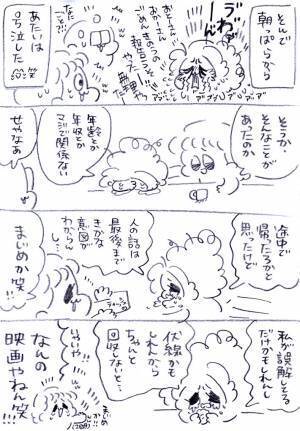 そんで
朝っぱらから
うわーん
おとーさん
おかーさん
ごめん
きのうの
報告
無理
やーっ!!
なに
ごと?!
あたいは
号泣した
笑
そうか、
そんなことが
あったのか
年齢とか
年収とか
マジで関係ない
せやなあ
途中で
帰ったろかと
思ったけど
人の話は
最後まで
きかな
意図が
わからん
し…
まじめか笑!!
私が誤解してる
だけかもしれんし
伏線かも
しれんから
ちゃんと
回収しないと…
いやいや!!
なんの
映画やねん笑!!!